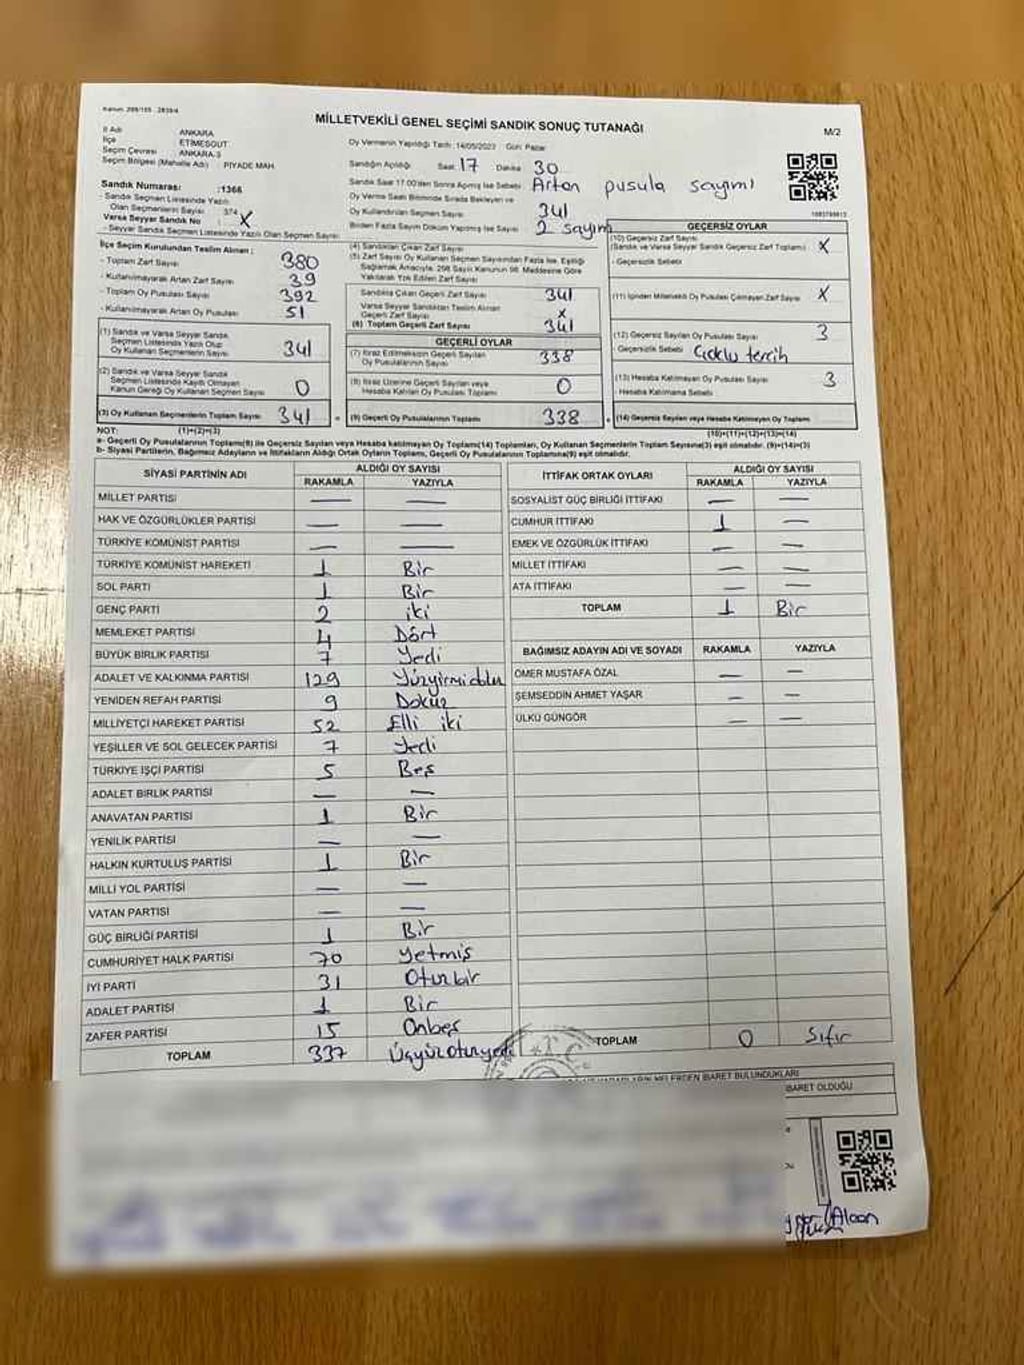 Kanun: 298/105 - 2839/4
MİLLETVEKİLİ GENEL SEÇİMİ SANDIK SONUÇ TUTANAĞI
M/2
İl Adı ANKARA
İlçe ETİMESGUT
Seçim Çevresi ANKARA-3
Seçim Bölgesi (Mahalle Adı) : PİYADE MAH.
Sandık Numarası: :1366
- Sandık Seçmen Listesinde Yazılı
Olan Seçmenlerin Sayısı : 374
Varsa Seyyar Sandık No : X
- Seyyar Sandık Seçmen Listesinde Yazılı Olan Seçmen Sayısı:
Oy Vermenin Yapıldığı Tarih: 14/05/2023 Gün: Pazar
Sandığın Açıldığı Saat: 17 Dakika 30
Sandık Saat 17.00'den Sonra Açılmış İse Sebebi Artan pusula sayımı
Oy Verme Saati Bitiminde Sırada Bekleyen ve
Oy Kullandırılan Seçmen Sayısı 341
Birden Fazla Sayım Döküm Yapılmış İse Sayısı 2 sayım
İlçe Seçim Kurulundan Teslim Alınan ;
- Toplam Zarf Sayısı 380
- Kullanılmayarak Artan Zarf Sayısı 39
- Toplam Oy Pusulası Sayısı 392
- Kullanılmayarak Artan Oy Pusulası 51
(1) Sandık ve Varsa Seyyar Sandık
Seçmen Listesinde Yazılı Olup
Oy Kullanan Seçmenlerin Sayısı 341
(2) Sandık ve Varsa Seyyar Sandık
Seçmen Listesinde Kayıtlı Olmayan
Kanun Gereği Oy Kullanan Seçmen Sayısı 0
(3) Oy Kullanan Seçmenlerin Toplam Sayısı 341
(4) Sandıktan Çıkan Zarf Sayısı
(5) Zarf Sayısı Oy Kullanan Seçmen Sayısından Fazla İse, Eşitliği
Sağlamak Amacıyla, 298 Sayılı Kanunun 98. Maddesine Göre
Yakılarak Yok Edilen Zarf Sayısı
Sandıkta Çıkan Geçerli Zarf Sayısı 341
Varsa Seyyar Sandıktan Teslim Alınan
Geçerli Zarf Sayısı X
(6) Toplam Geçerli Zarf Sayısı 341
GEÇERLİ OYLAR
(7) İtiraz Edilmeksizin Geçerli Sayılan
Oy Pusulalarının Sayısı 338
(8) İtiraz Üzerine Geçerli Sayılan veya
Hesaba Katılan Oy Pusulası Toplamı 0
= (9) Geçerli Oy Pusulalarının Toplamı 338
GEÇERSİZ OYLAR
(10) Geçersiz Zarf Sayısı
(Sandık ve Varsa Seyyar Sandık Geçersiz Zarf Toplamı) X
- Geçersizlik Sebebi
(11) İçinden Milletvekili Oy Pusulası Çıkmayan Zarf Sayısı X
(12) Geçersiz Sayılan Oy Pusulası Sayısı 3
- Geçersizlik Sebebi Çoklu tercih
(13) Hesaba Katılmayan Oy Pusulası Sayısı 3
- Hesaba Katılmama Sebebi
+ (14) Geçersiz Sayılan veya Hesaba Katılmayan Oy Toplamı
NOT: (1)+(2)=(3) (10)+(11)+(12)+(13)=(14)
a- Geçerli Oy Pusulalarının Toplamı(9) ile Geçersiz Sayılan veya Hesaba katılmayan Oy Toplamı(14) Toplamları, Oy Kullanan Seçmenlerin Toplam Sayısına(3) eşit olmalıdır. (9)+(14)=(3)
b- Siyasi Partilerin, Bağımsız Adayların ve İttifakların Aldığı Ortak Oyların Toplamı, Geçerli Oy Pusulalarının Toplamına(9) eşit olmalıdır.
SİYASİ PARTİNİN ADI ALDIĞI OY SAYISI
RAKAMLA YAZIYLA
MİLLET PARTİSI — —
HAK VE ÖZGÜRLÜKLER PARTİSİ — —
TÜRKİYE KOMÜNİST PARTİSİ — —
TÜRKİYE KOMÜNİST HAREKETİ 1 Bir
SOL PARTİ 1 Bir
GENÇ PARTİ 2 iki
MEMLEKET PARTİSİ 4 Dört
BÜYÜK BİRLİK PARTİSİ 7 Yedi
ADALET VE KALKINMA PARTİSİ 129
YENİDEN REFAH PARTİSİ 9 Dokuz
MİLLİYETÇİ HAREKET PARTİSİ 52 Elli iki
YEŞİLLER VE SOL GELECEK PARTİSİ 7 Yedi
TÜRKİYE İŞÇİ PARTİSİ 5 Beş
ADALET BİRLİK PARTİSİ — —
ANAVATAN PARTİSİ 1 Bir
YENİLİK PARTİSİ — —
HALKIN KURTULUŞ PARTİSİ 1 Bir
MİLLİ YOL PARTİSİ — —
VATAN PARTİSİ — —
GÜÇ BİRLİĞİ PARTİSİ 1 Bir
CUMHURİYET HALK PARTİSİ 70 Yetmiş
İYİ PARTİ 31 Otuzbir
ADALET PARTİSİ 1 Bir
ZAFER PARTİSİ 15 Onbeş
TOPLAM 337 Üçyüzotuzyedi
İTTİFAK ORTAK OYLARI ALDIĞI OY SAYISI
RAKAMLA YAZIYLA
SOSYALİST GÜÇ BİRLİĞİ İTTİFAKI — —
CUMHUR İTTİFAKI 1 —
EMEK VE ÖZGÜRLÜK İTTİFAKI — —
MİLLET İTTİFAKI — —
ATA İTTİFAKI — —
TOPLAM 1 Bir
BAĞIMSIZ ADAYIN ADI VE SOYADI RAKAMLA YAZIYLA
ÖMER MUSTAFA ÖZAL — —
ŞEMSEDDİN AHMET YAŞAR — —
ÜLKÜ GÜNGÖR — —
TOPLAM 0 Sıfır
T.C.
İBARET BULUNDUKLARI
İBARET OLDUĞU